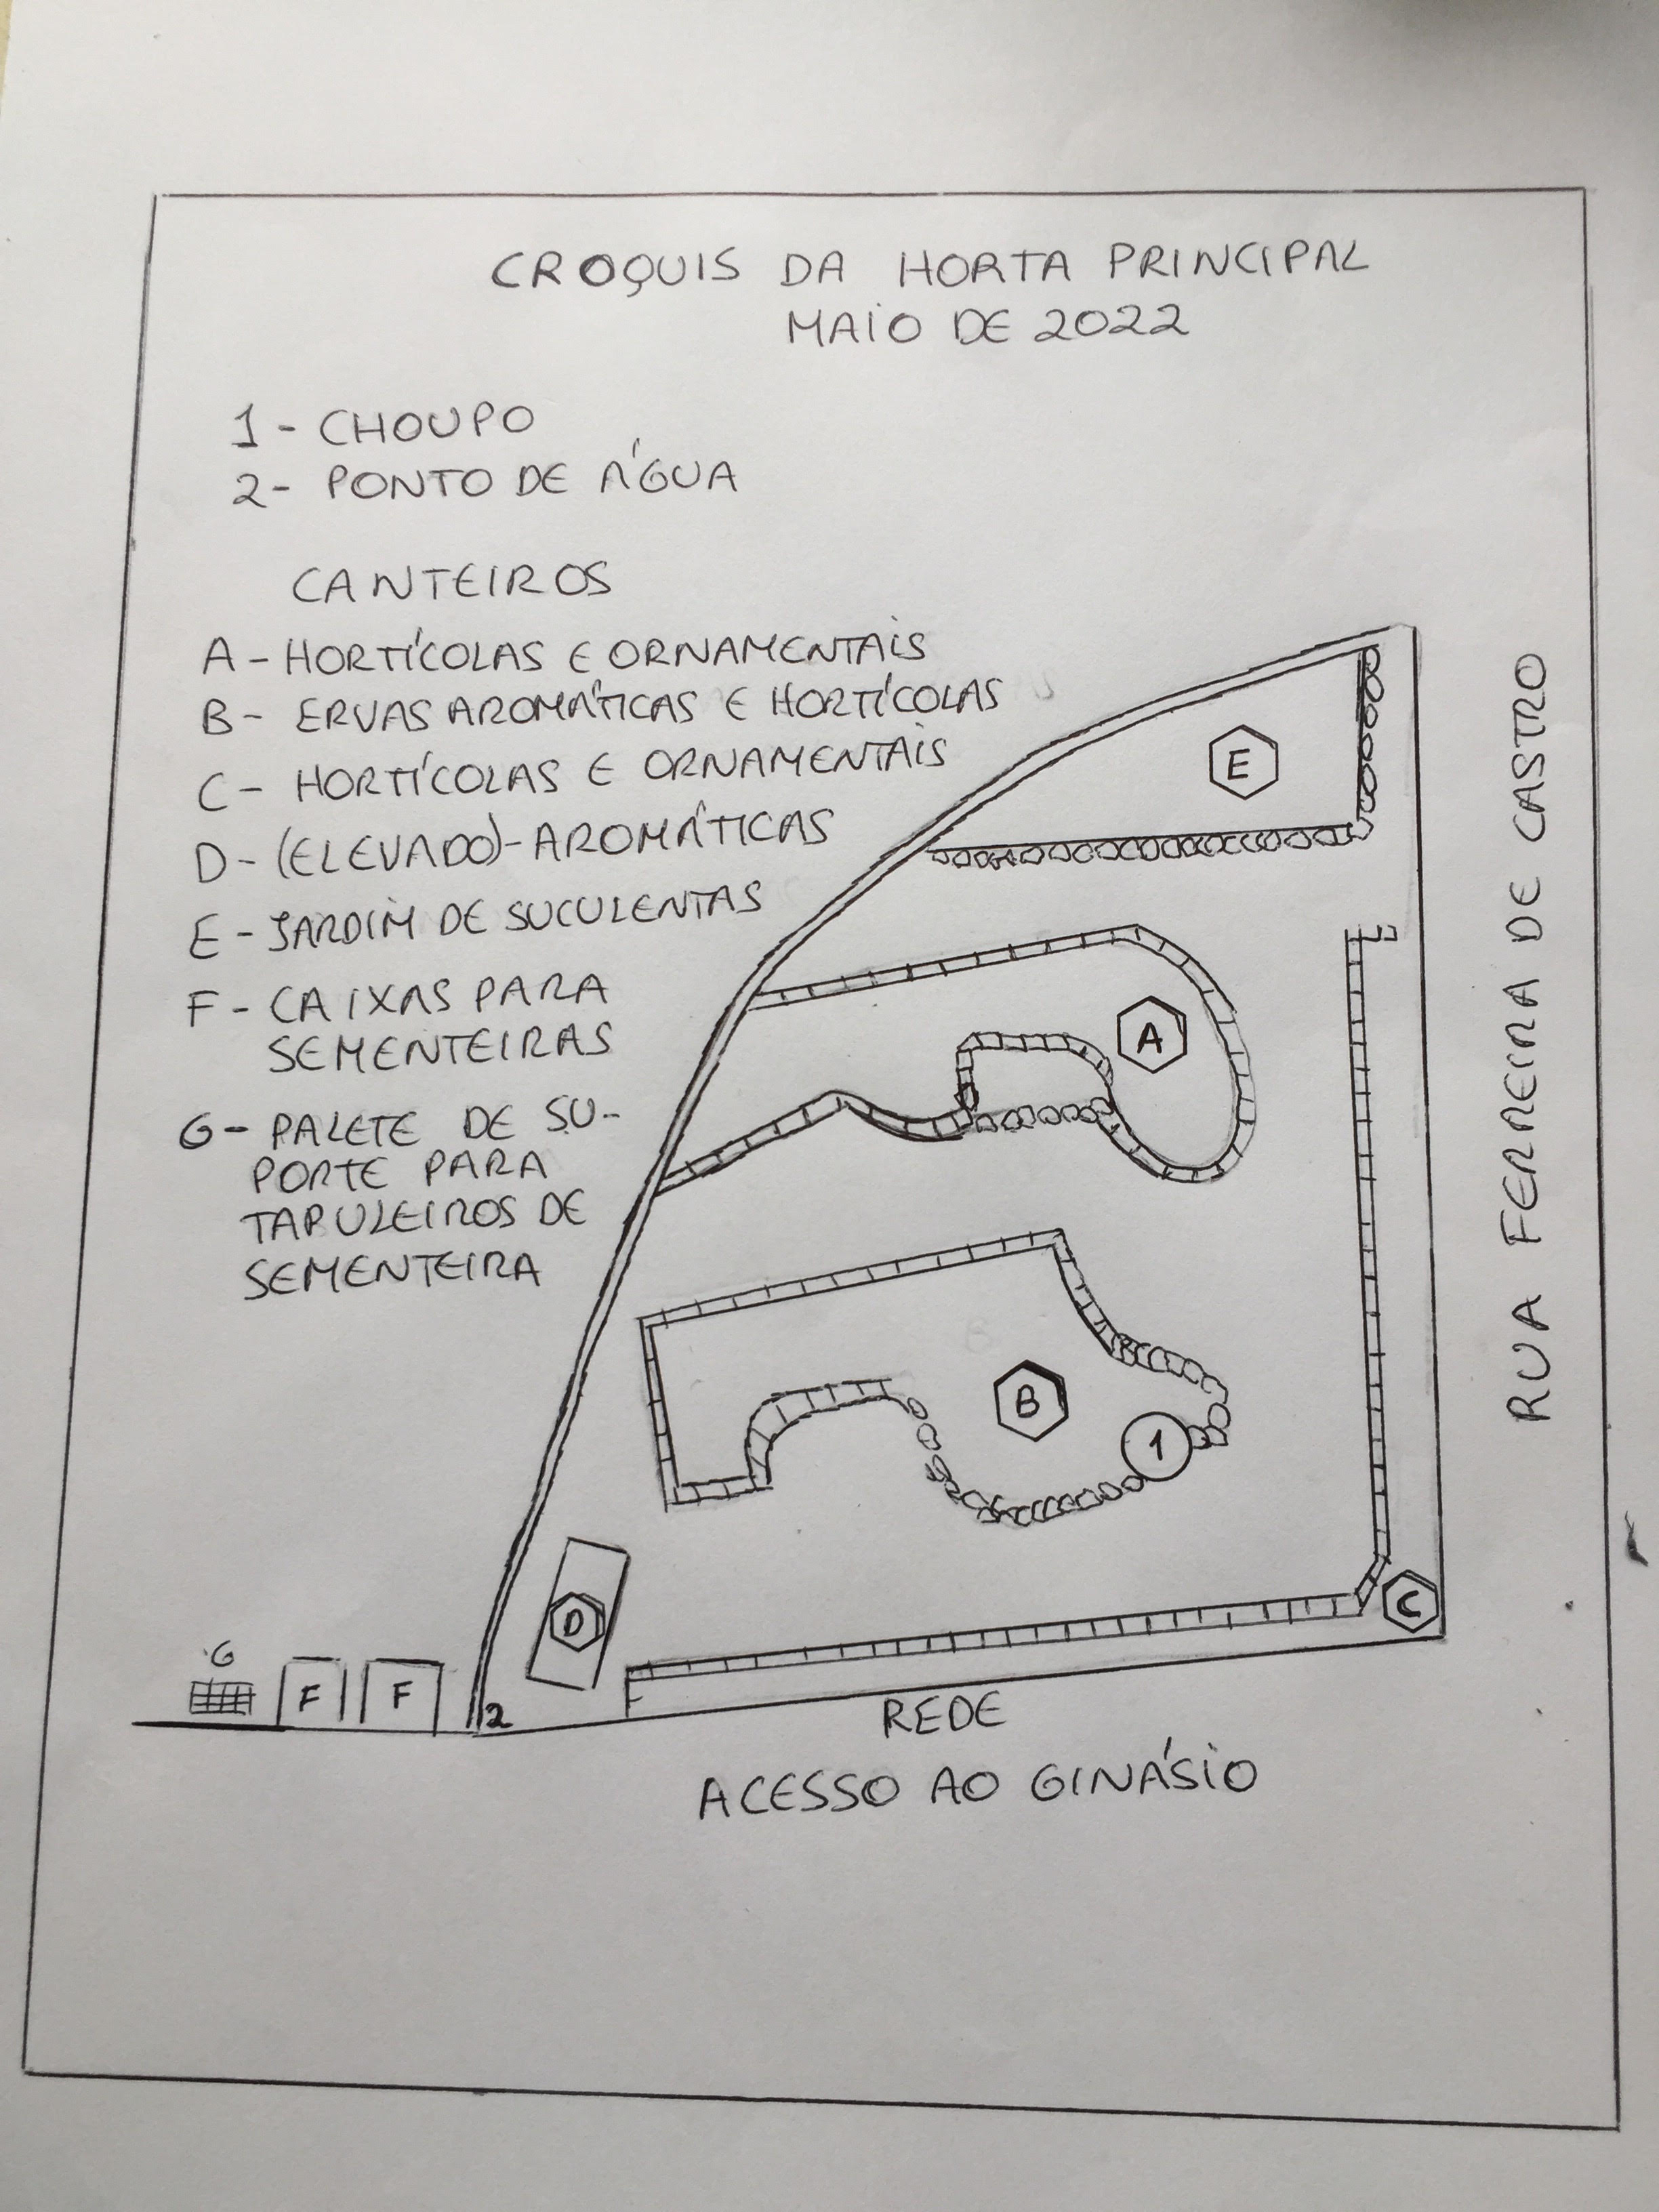 CROQUIS DA HORTA PRINCIPAL
MAIO DE 2022
1 - CHOUPO
2 - PONTO DE ÁGUA
CANTEIROS
A - HORTÍCOLAS E ORNAMENTAIS
B - ERVAS AROMÁTICAS E HORTÍCOLAS
C - HORTÍCOLAS E ORNAMENTAIS
D - (ELEVADO) - AROMÁTICAS
E - JARDIM DE SUCULENTAS
F - CAIXAS PARA
SEMENTEIRAS
G - PALETE DE SU-
PORTE PARA
TABULEIROS DE
SEMENTEIRA
E
A
B
1
D
C
G
F
F
2
REDE
ACESSO AO GINÁSIO
RUA FERREIRA DE CASTRO